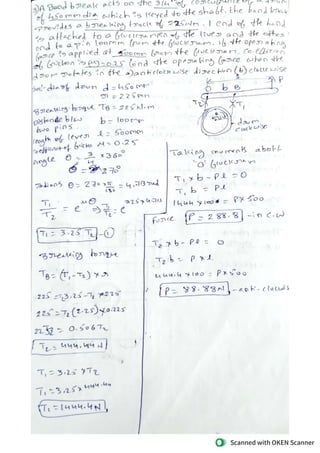 A Band break acts on the 3/4th of circumference of a drum
of 450mm dia which is keyed to the shaft. the band break
provides a breaking torque of 225N.m. 1 end of the band
is attached to a fulcrum pin of the lever and the other
end to a pin 100mm from the fulcrum. If the operating
force is applied at 500mm from the fulcrum. Co.efficient
of friction is 0.25 find the operating force when the
drum rotates in the a) anticlockwise direction (b) clockwise
Sol:- dia of drum d = 450mm
r = 225mm
Breaking torque TB = 225N.m
Distance b/w b = 100mm
two pins.
length of lever l = 500mm
M = 0.25
angle θ = 3/4 × 360°
θ = 270°
radians θ = 270 × π/180 = 4.713 rad
T1/T2 = e^Mθ ⇒ T1/T2 = e^0.25×4.713
T1 = 3.25 T2 - ①
Breaking torque
TB = (T1 - T2) × r
225 = 3.25 - T2 × 225
225 = T2 (2.25) × 0.225
225 = 0.506 T2
T2 = 444.44 N
T1 = 3.25 × T2
T1 = 3.25 × 444.44
T1 = 1444.4 N
O b B P
T2 T1
drum
clockwise
Taking moments about
'O' fulcrum
T1 × b - Pl = 0
T1 b = Pl
1444 × 100 = P × 500
Force P = 288.8 - in C.W
T2 × b - Pl = 0
T2 b = P × l
444.4 × 100 = P × 500
P = 88.88N - anti. clockwis
Scanned with OKEN Scanner